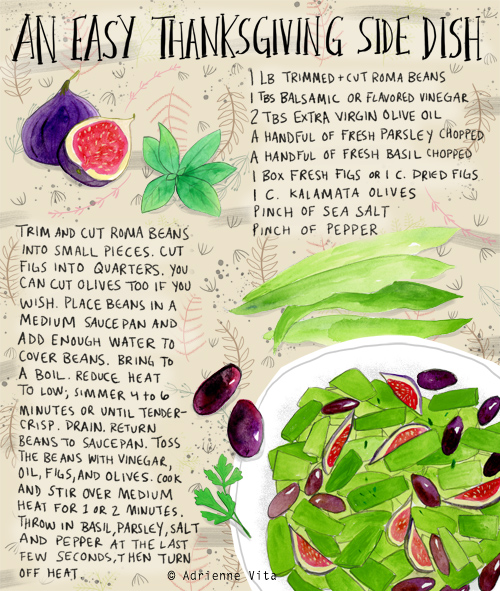 AN EASY THANKSGIVING SIDE DISH
1 LB TRIMMED + CUT ROMA BEANS
1 TBS BALSAMIC OR FLAVORED VINEGAR
2 TBS EXTRA VIRGIN OLIVE OIL
A HANDFUL OF FRESH PARSLEY CHOPPED
A HANDFUL OF FRESH BASIL CHOPPED
1 BOX FRESH FIGS OR 1 C. DRIED FIGS
1 C. KALAMATA OLIVES
PINCH OF SEA SALT
PINCH OF PEPPER
TRIM AND CUT ROMA BEANS
INTO SMALL PIECES. CUT
FIGS INTO QUARTERS. YOU
CAN CUT OLIVES TOO IF YOU
WISH. PLACE BEANS IN A
MEDIUM SAUCEPAN AND
ADD ENOUGH WATER TO
COVER BEANS. BRING TO
A BOIL. REDUCE HEAT
TO LOW; SIMMER 4 to 6
MINUTES OR UNTIL TENDER-
CRISP. DRAIN. RETURN
BEANS TO SAUCEPAN. TOSS
THE BEANS WITH VINEGAR,
OIL, FIGS, AND OLIVES. COOK
AND STIR OVER MEDIUM
HEAT FOR 1 OR 2 MINUTES.
THROW IN BASIL, PARSLEY, SALT
AND PEPPER AT THE LAST
FEW SECONDS, THEN TURN
OFF HEAT.
© Adrienne Vita